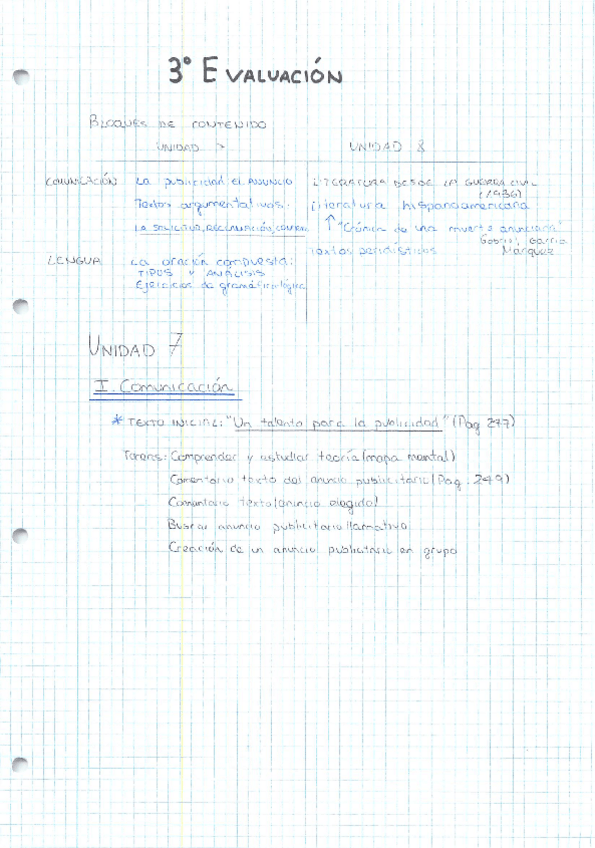 3º EVALUACIÓN
BLOQUES DE CONTENIDO
UNIDAD 7
UNIDAD 8
COMUNICACIÓN
La publicidad el ANUNCIO
Textos argumentativos:
LA SOLICITUD, RECLAMACIÓN,
LITERATURA DESDE LA GUERRA CIVIL
(1936)
Literatura hispanoamericana
↑ "Crónica de una muerte anunciada"
Gabriel García
Márquez
Textos periodísticos
LENGUA
La oración compuesta:
TIPOS Y ANÁLISIS
Ejercicios de
UNIDAD 7
I. Comunicación
* TEXTO INICIAL: "Un talento para la publicidad" (Pag 277)
Tareas: Comprender y estudiar teoría (mapa mental)
Comentario texto del anuncio publicitario (Pag. 249)
Comentario texto (anuncio elegido)
Buscar anuncio publicitario llamativo
Creación de un anuncio publicitario en grupo